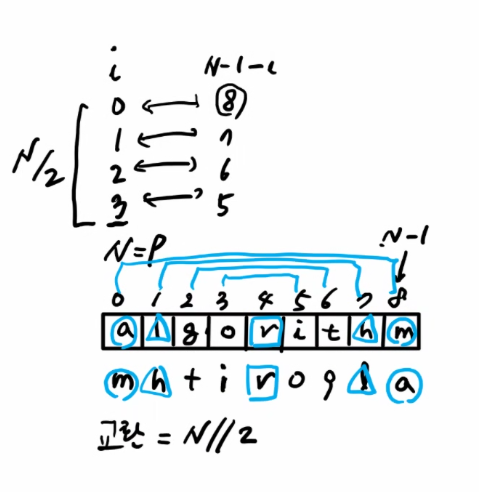 i N-1-i
0 ↔ 8
1 ↔ 7
2 ↔ 6
3 ↔ 5
N/2
N=9
N-1
0 1 2 3 4 5 6 7 8
a l g o r i t h m
m h t i r o g l a
교환 = N//2